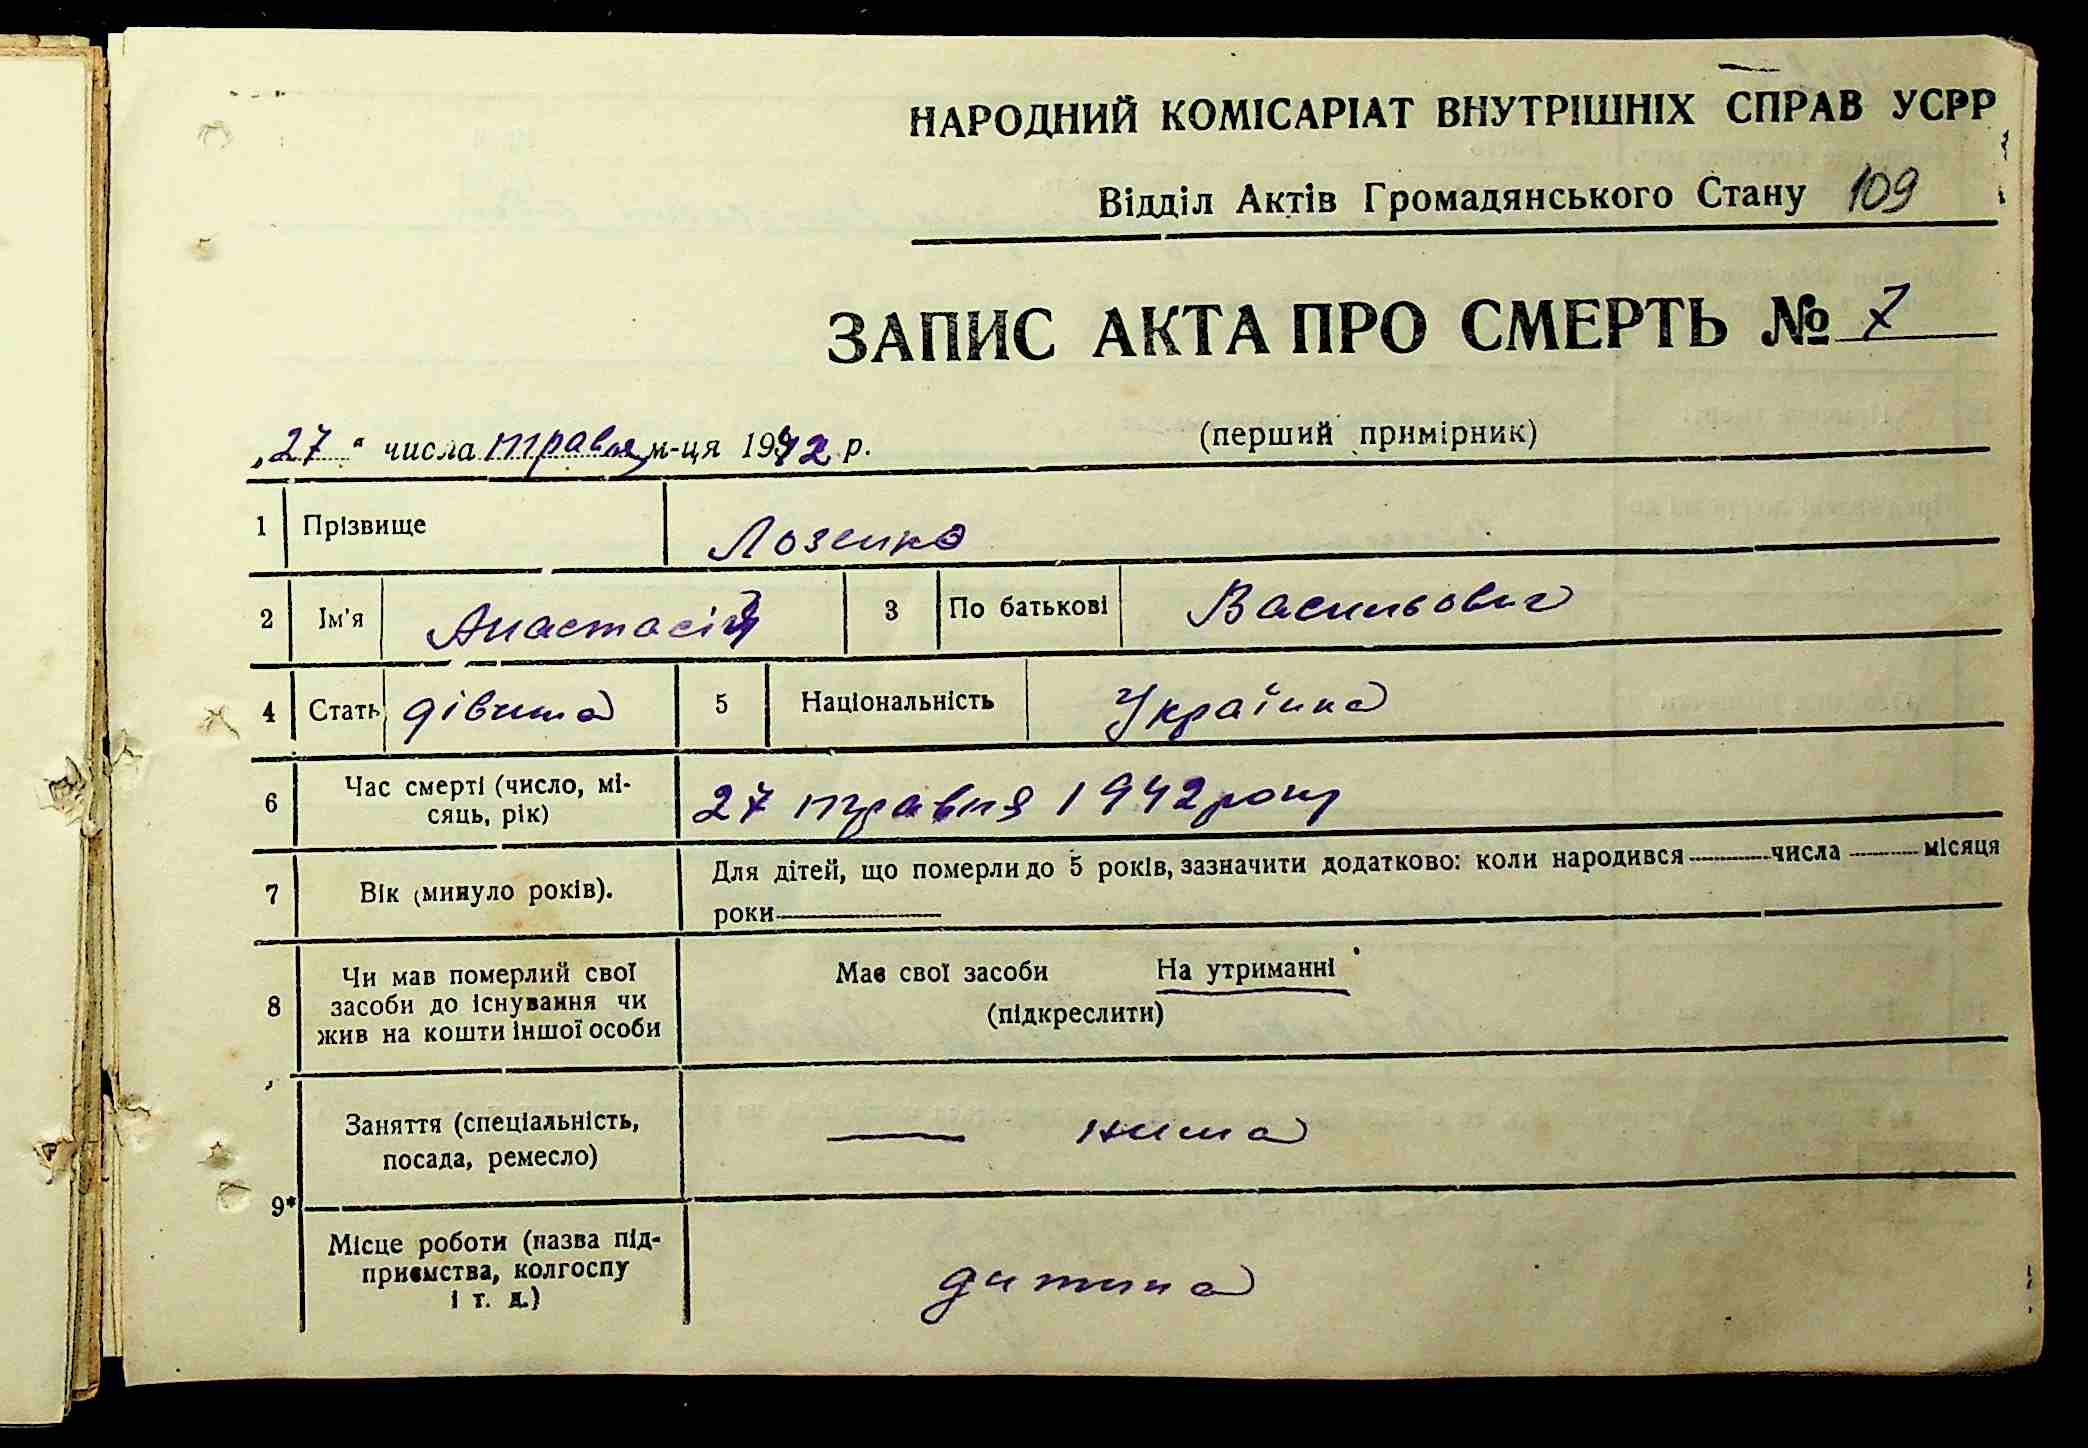 НАРОДНИЙ КОМІСАРІАТ ВНУТРІШНІХ СПРАВ УСРР
Відділ Актів Громадянського Стану 109
ЗАПИС АКТА ПРО СМЕРТЬ № 7
„27“ числа травня м-ця 1942 р. (перший примірник)
1 Прізвище Лозенко
2 Ім'я Анастасія 3 По батькові Васильовна
4 Стать дівчина 5 Національність Українка
6 Час смерті (число, мі-
сяць, рік) 27 травня 1942 року
7 Вік (минуло років). Для дітей, що померли до 5 років, зазначити додатково: коли народився числа місяця
роки
8 Чи мав померлий свої
засоби до існування чи
жив на кошти іншої особи
Має свої засоби На утриманні
(підкреслити)
9* Заняття (спеціальність,
посада, ремесло) — нима
Місце роботи (назва під-
приємства, колгоспу
і т. д.) дитина